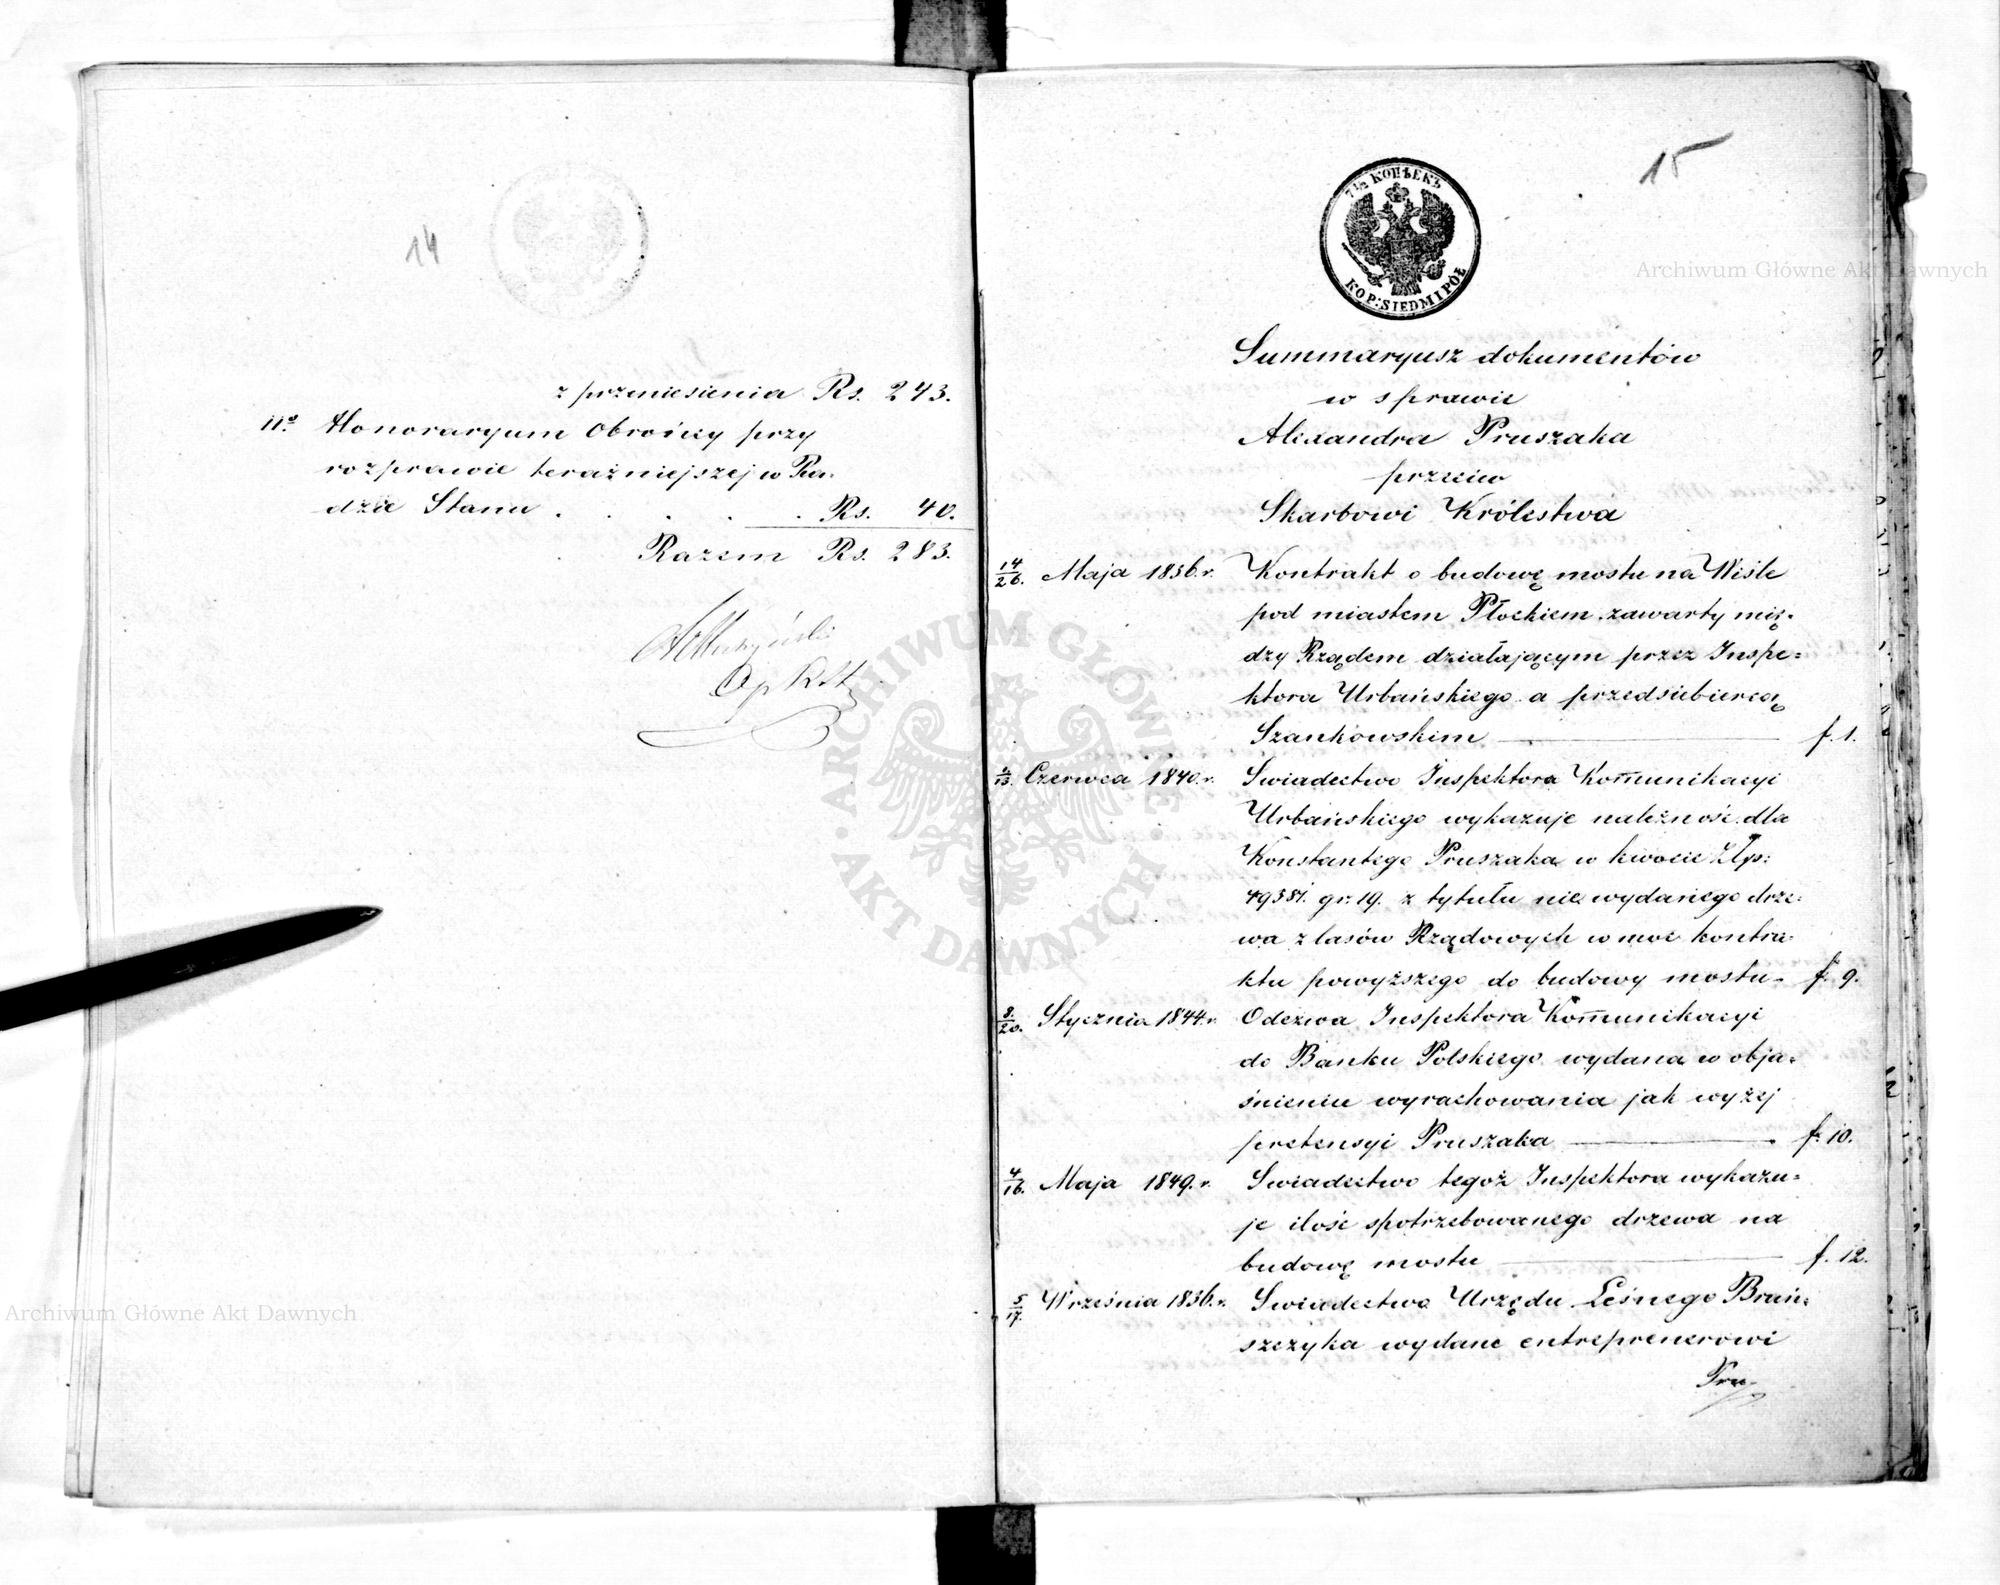 14
z przeniesienia Rs. 243.
11º Honoraryum Obrońcy przy
rozprawie teraźniejszej w Ra-
dzie Stanu . . . . Rs. 40.
Razem Rs. 283.
15
7 1/2 КОПѢЕКЪ
KOP: SIEDM I PÓŁ
Summaryusz dokumentów
w sprawie
Alexandra Pruszaka
przeciw
Skarbowi Królestwa
14/26. Maja 1836.r. Kontrakt o budowę mostu na Wiśle
pod miastem Płockiem zawarty mię-
dzy Rządem działającym przez Inspe=
ktora Urbańskiego a przedsiebiercą
Szańkowskim f. 1.
1/13. Czerwca 1840.r. Swiadectwo Inspektora Kom̄unikacyi
Urbańskiego wykazuje należność dla
Konstantego Pruszaka w kwocie Złp:
49381. gr. 19. z tytułu nie wydanego drze-
wa z lasów Rządowych w moc kontra-
ktu powyższego do budowy mostu - f. 9.
8/20. Stycznia 1844.r. Odezwa Inspektora Kom̄unikacyi
do Banku Polskiego wydana w obja-
śnieniu wyrachowania jak wyżej
pretensyi Pruszaka f. 10.
4/16. Maja 1849.r. Swiadectwo tegoż Inspektora wykazu=
je ilość spotrzebowanego drzewa na
budowę mostu f. 12.
5/17. Września 1836.r. Swiadectwo Urzędu Leśnego Brań-
szczyka wydane entreprenerowi
Pru-
ARCHIWUM GŁÓWNE AKT DAWNYCH
Archiwum Główne Akt Dawnych
Archiwum Główne Akt Dawnych